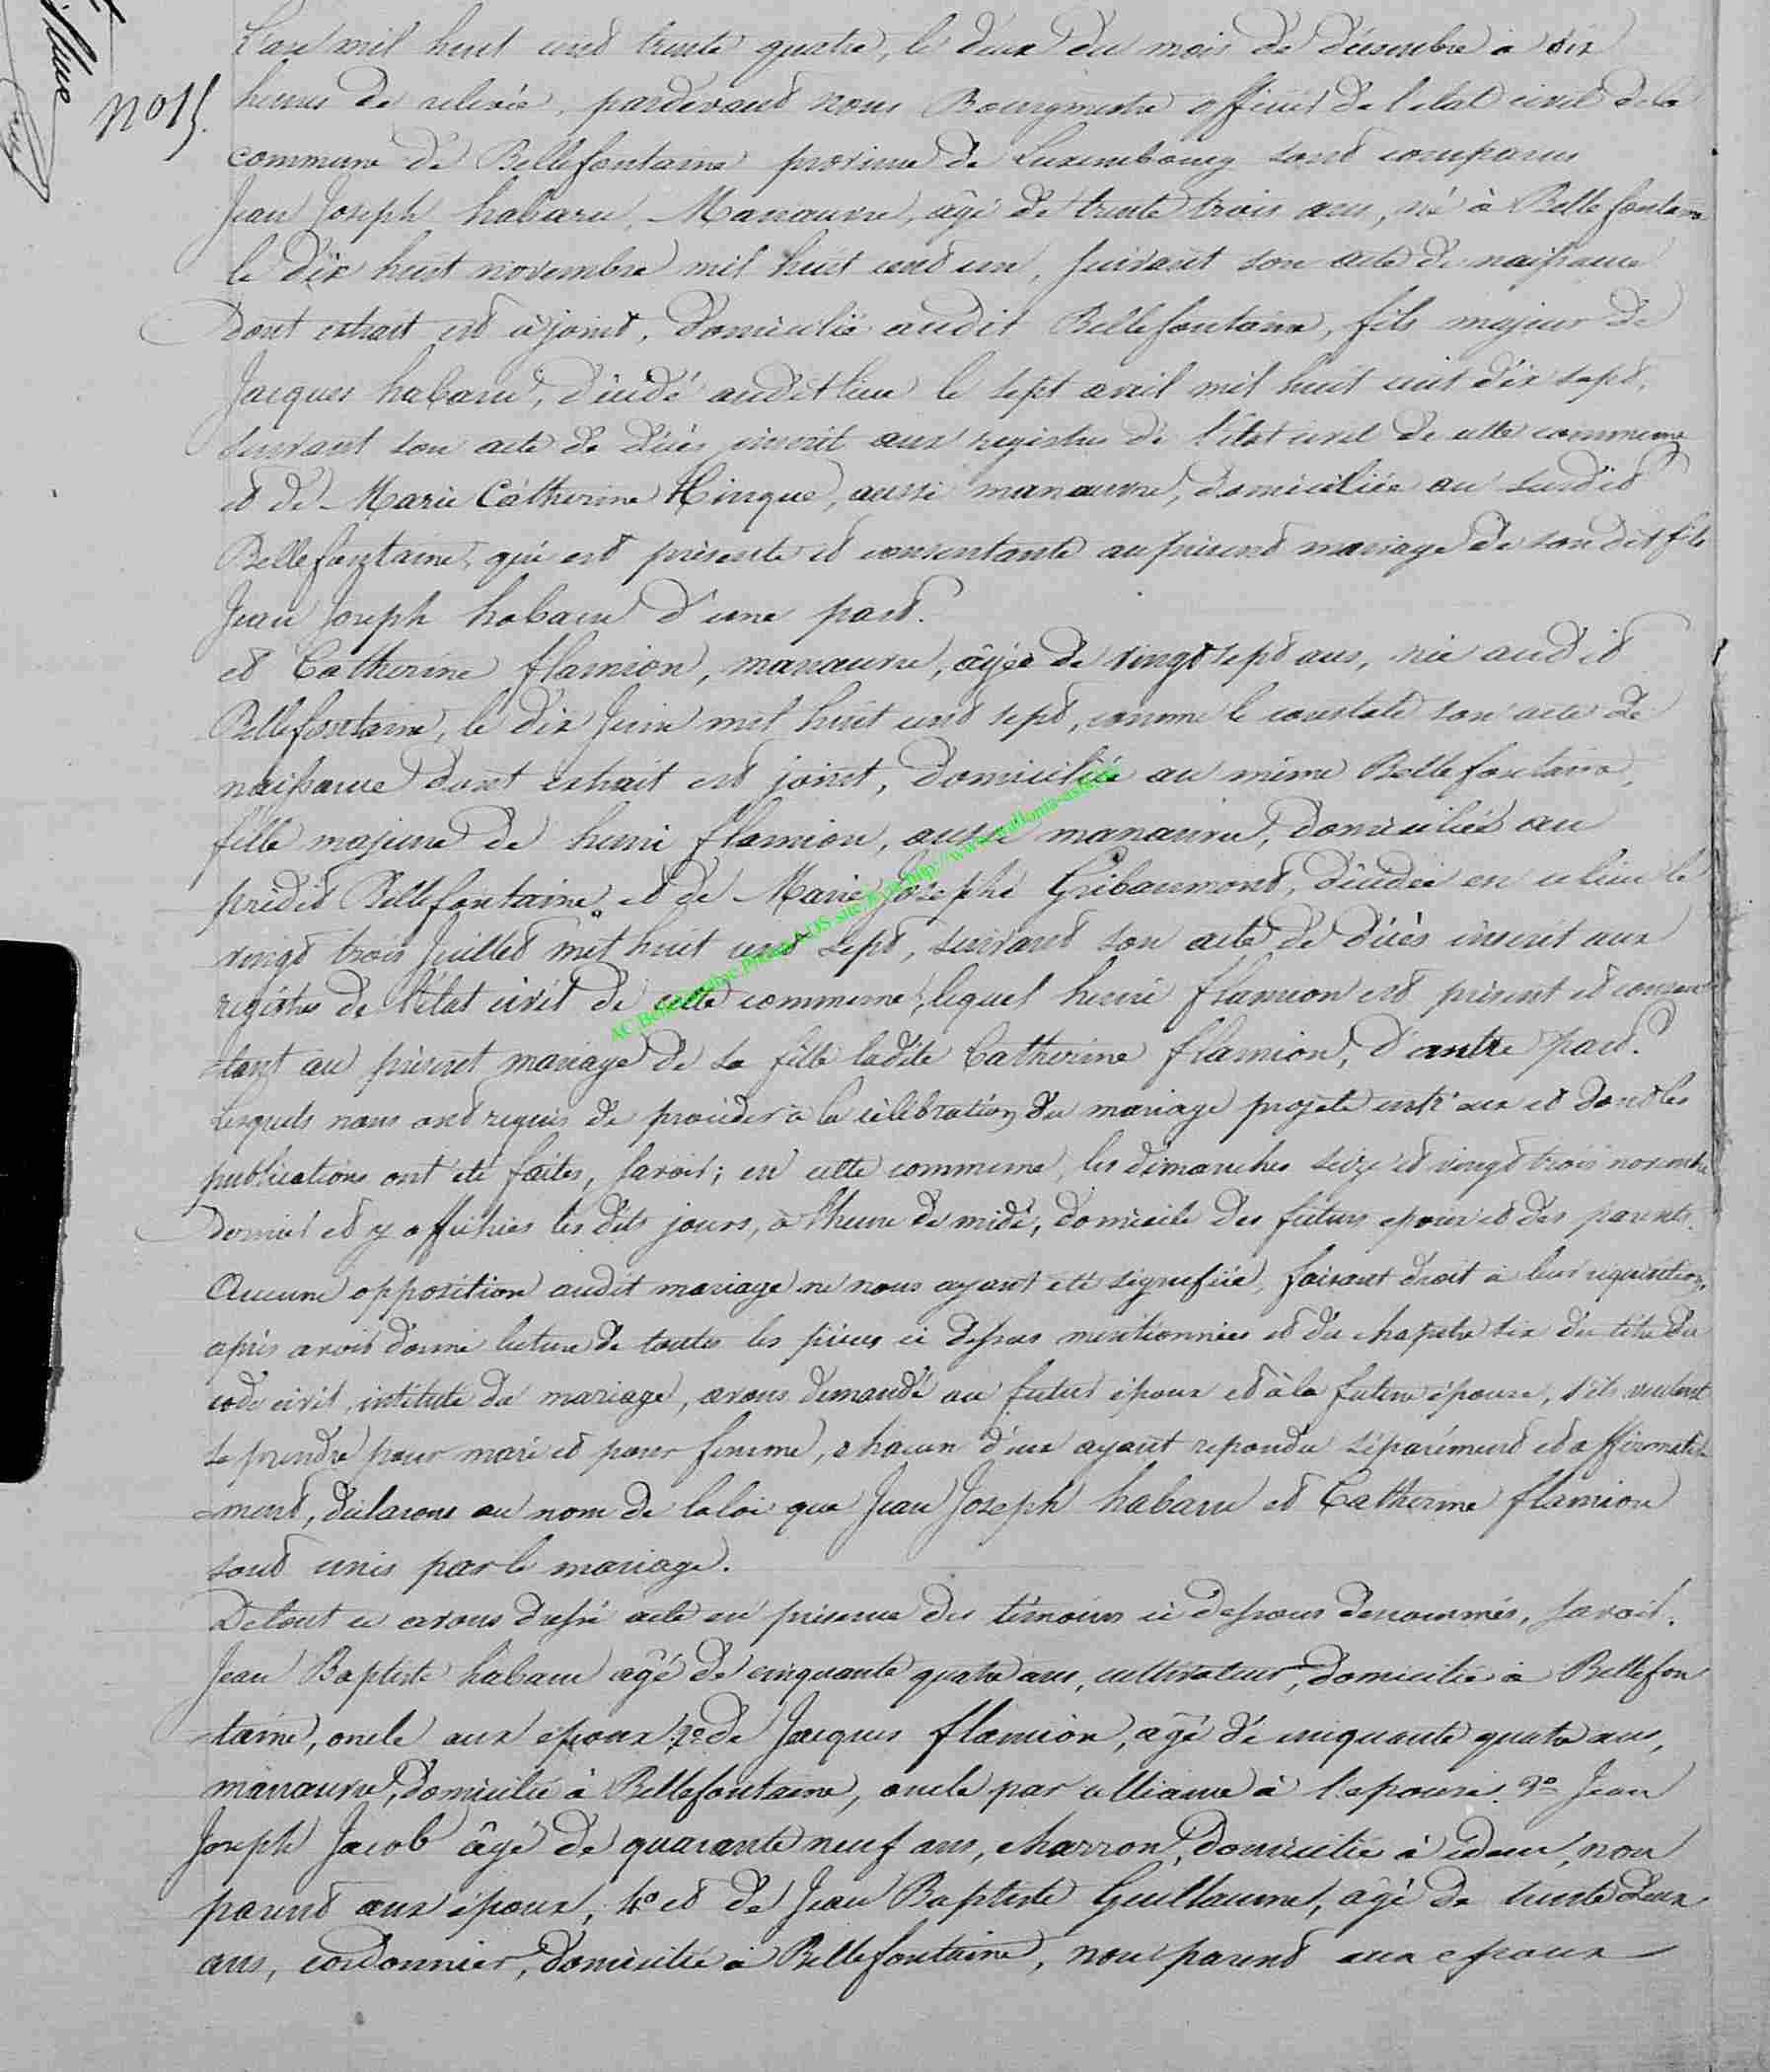 No 15.
L'an mil huit cent trente quatre, le deux du mois de décembre à dix
heures de relevée, pardevant nous Bourgmestre officier de l'etat civil de la
commune de Bellefontaine province de Luxembourg sont comparus
Jean Joseph habaru, Manœuvre, âgé de trente trois ans, né à Bellefontaine
le dix huit novembre mil huit cent un, suivant son acte de naissance
dont extrait est cijoint, domicilié audit Bellefontaine, fils majeur de
Jacques habaru, décédé audit lieu le sept avril mil huit cent dix sept,
suivant son acte de décès inscrit aux registres de l'état civil de cette commune
et de Marie Catherine Hinque, aussi manœuvre, domiciliée au susdit
Bellefontaine, qui est présente et consentante au présent mariage de son dit fils
Jean Joseph habaru d'une part.
et Catherine flamion, manœuvre, âgée de vingt sept ans, née audit
Bellefontaine, le dix Juin mil huit cent sept, comme le constate son acte de
naissance dont extrait est joint, domiciliée au même Bellefontaine,
fille majeure de henri flamion, aussi manœuvre, domicilié au
prédit Bellefontaine et de Marie Josephe Gribaumont, décédée en ce lieu le
vingt trois Juillet mil huit cent sept, suivant son acte de décès inscrit aux
registres de l'état civil de cette commune, lequel henri flamion est présent et consen
-tant au présent mariage de sa fille ladite Catherine flamion, d'autre part.
Lesquels nous ont requis de procéder à la célébration du mariage projeté entr'eux et dont les
publications ont été faites, savoir; en cette commune, les dimanches seize et vingt trois novembre
dernier et y affichées les dits jours, à l'heure de midi, domicile des futurs epoux et des parents.
Aucune opposition audit mariage ne nous ayant été signifiée, faisant droit à leur réquisition,
après avoir donné lecture de toutes les pièces ci dessus mentionnées et du chapitre six du titre du
code civil, intitulé du mariage, avons demandé au futur époux et à la future épouse, s'ils veulent
se prendre pour mari et pour femme, chacun d'eux ayant repondu séparément et affirmative
-ment, déclarons au nom de la loi que Jean Joseph habaru et Catherine flamion
sont unis par le mariage.
De tout ce avons dressé acte en présence des témoins ci dessous denommés, savoir.
Jean Baptiste habaru agé de cinquante quatre ans, cultivateur, domicilié à Bellefon
-taine, oncle aux epoux, 2o de Jacques flamion, agé de cinquante quatre ans,
manœuvre, domicilié à Bellefontaine, oncle par alliance à l'epouse. 3o Jean
Joseph Jacob âgé de quarante neuf ans, charron, domicilié à idem, non
parent aux époux, 4o et de Jean Baptiste Guillaume, âgé de trente deux
ans, cordonnier, domicilié à Bellefontaine, non parent aux epoux